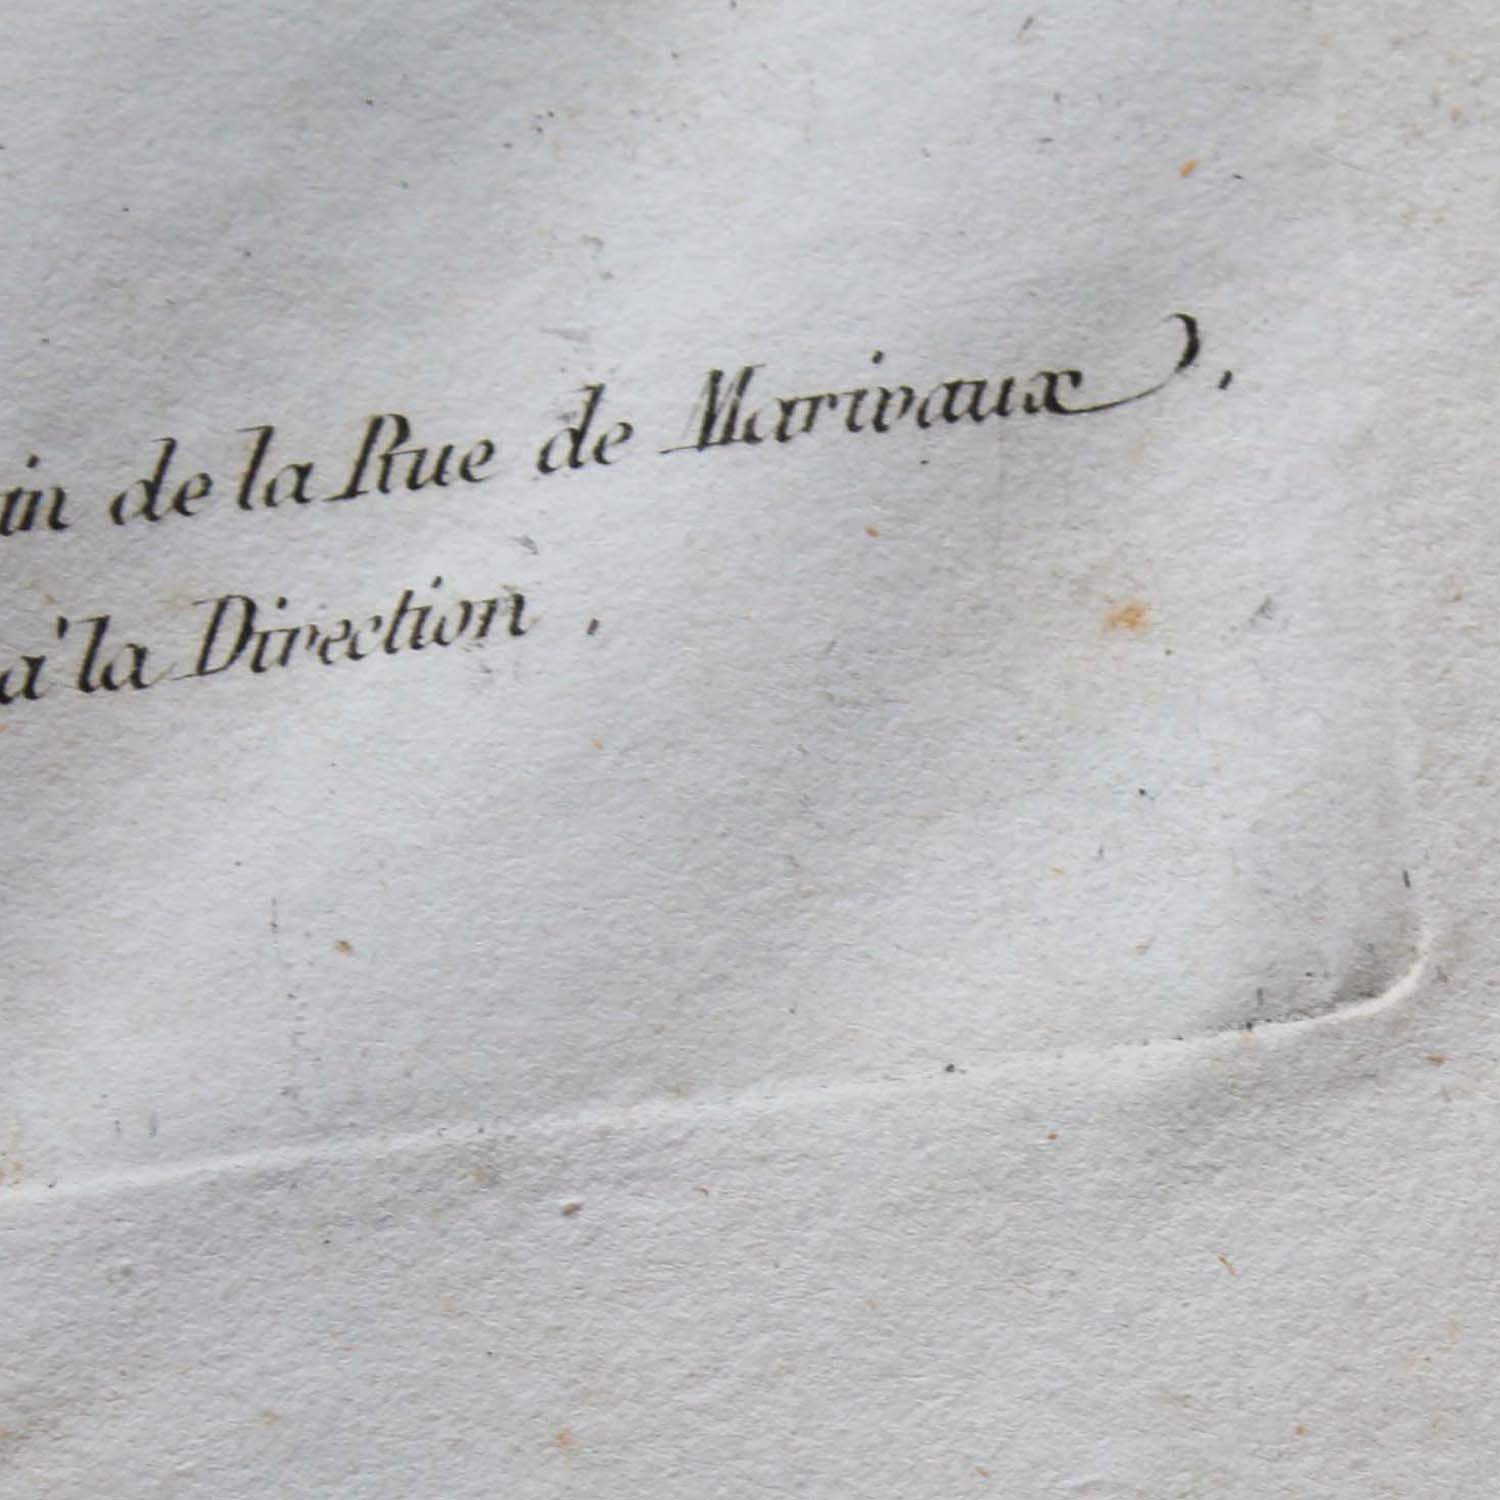 in de la Rue de Marivaux.
à la Direction.